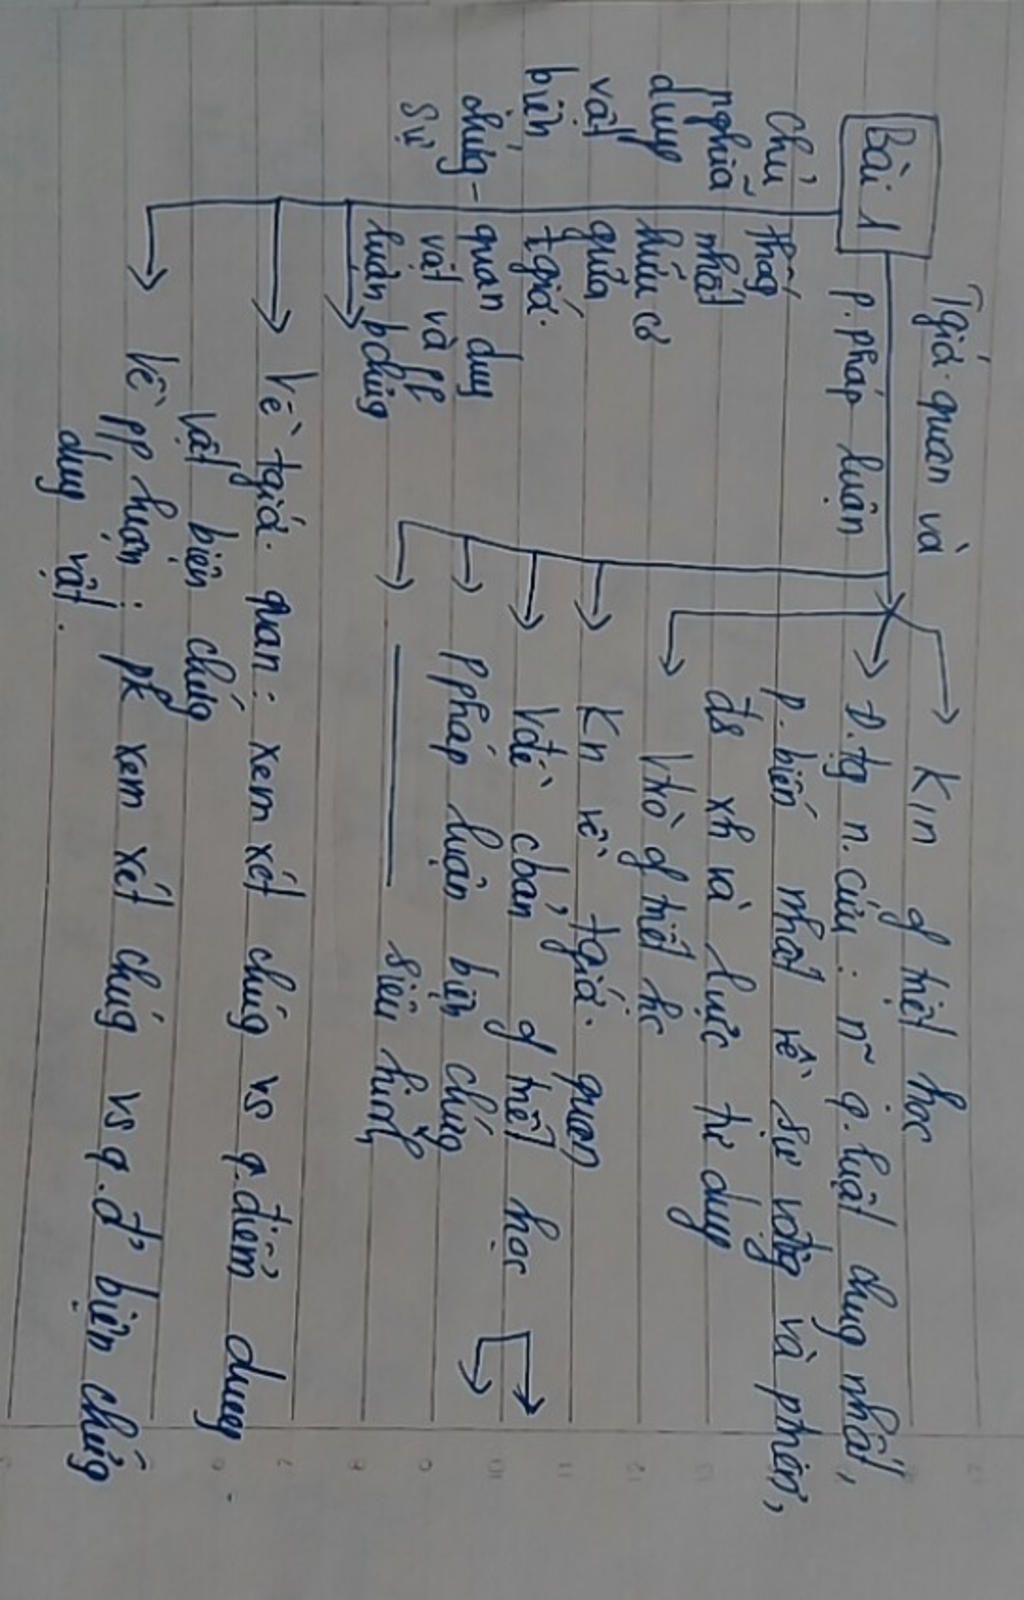 Tgiớ. quan và
Bài 1
p.pháp luận
K/n of triết học
Đ.tg n.cứu: n~ q.luật chug nhất,
p.biến nhất về sự vđộg và ptriển,
đs xh và lực tư duy
Vtrò of triết hc
Kn về tgiớ. quan
Vđề cbản of triết học
Ppháp luận biện chứg
siêu hình
Chủ
nghĩa
duy
vật
biện
chứg-
Sự
thốg
nhất
hữu cơ
giữa
tgiớ.
quan duy
vật và pp
luận bchứg
Về tgiớ. quan: xem xét chúg vs q.điểm duy
vật biện chứg
Về pp luận: pk xem xét chúg vs q.đ' biện chứg
duy vật.